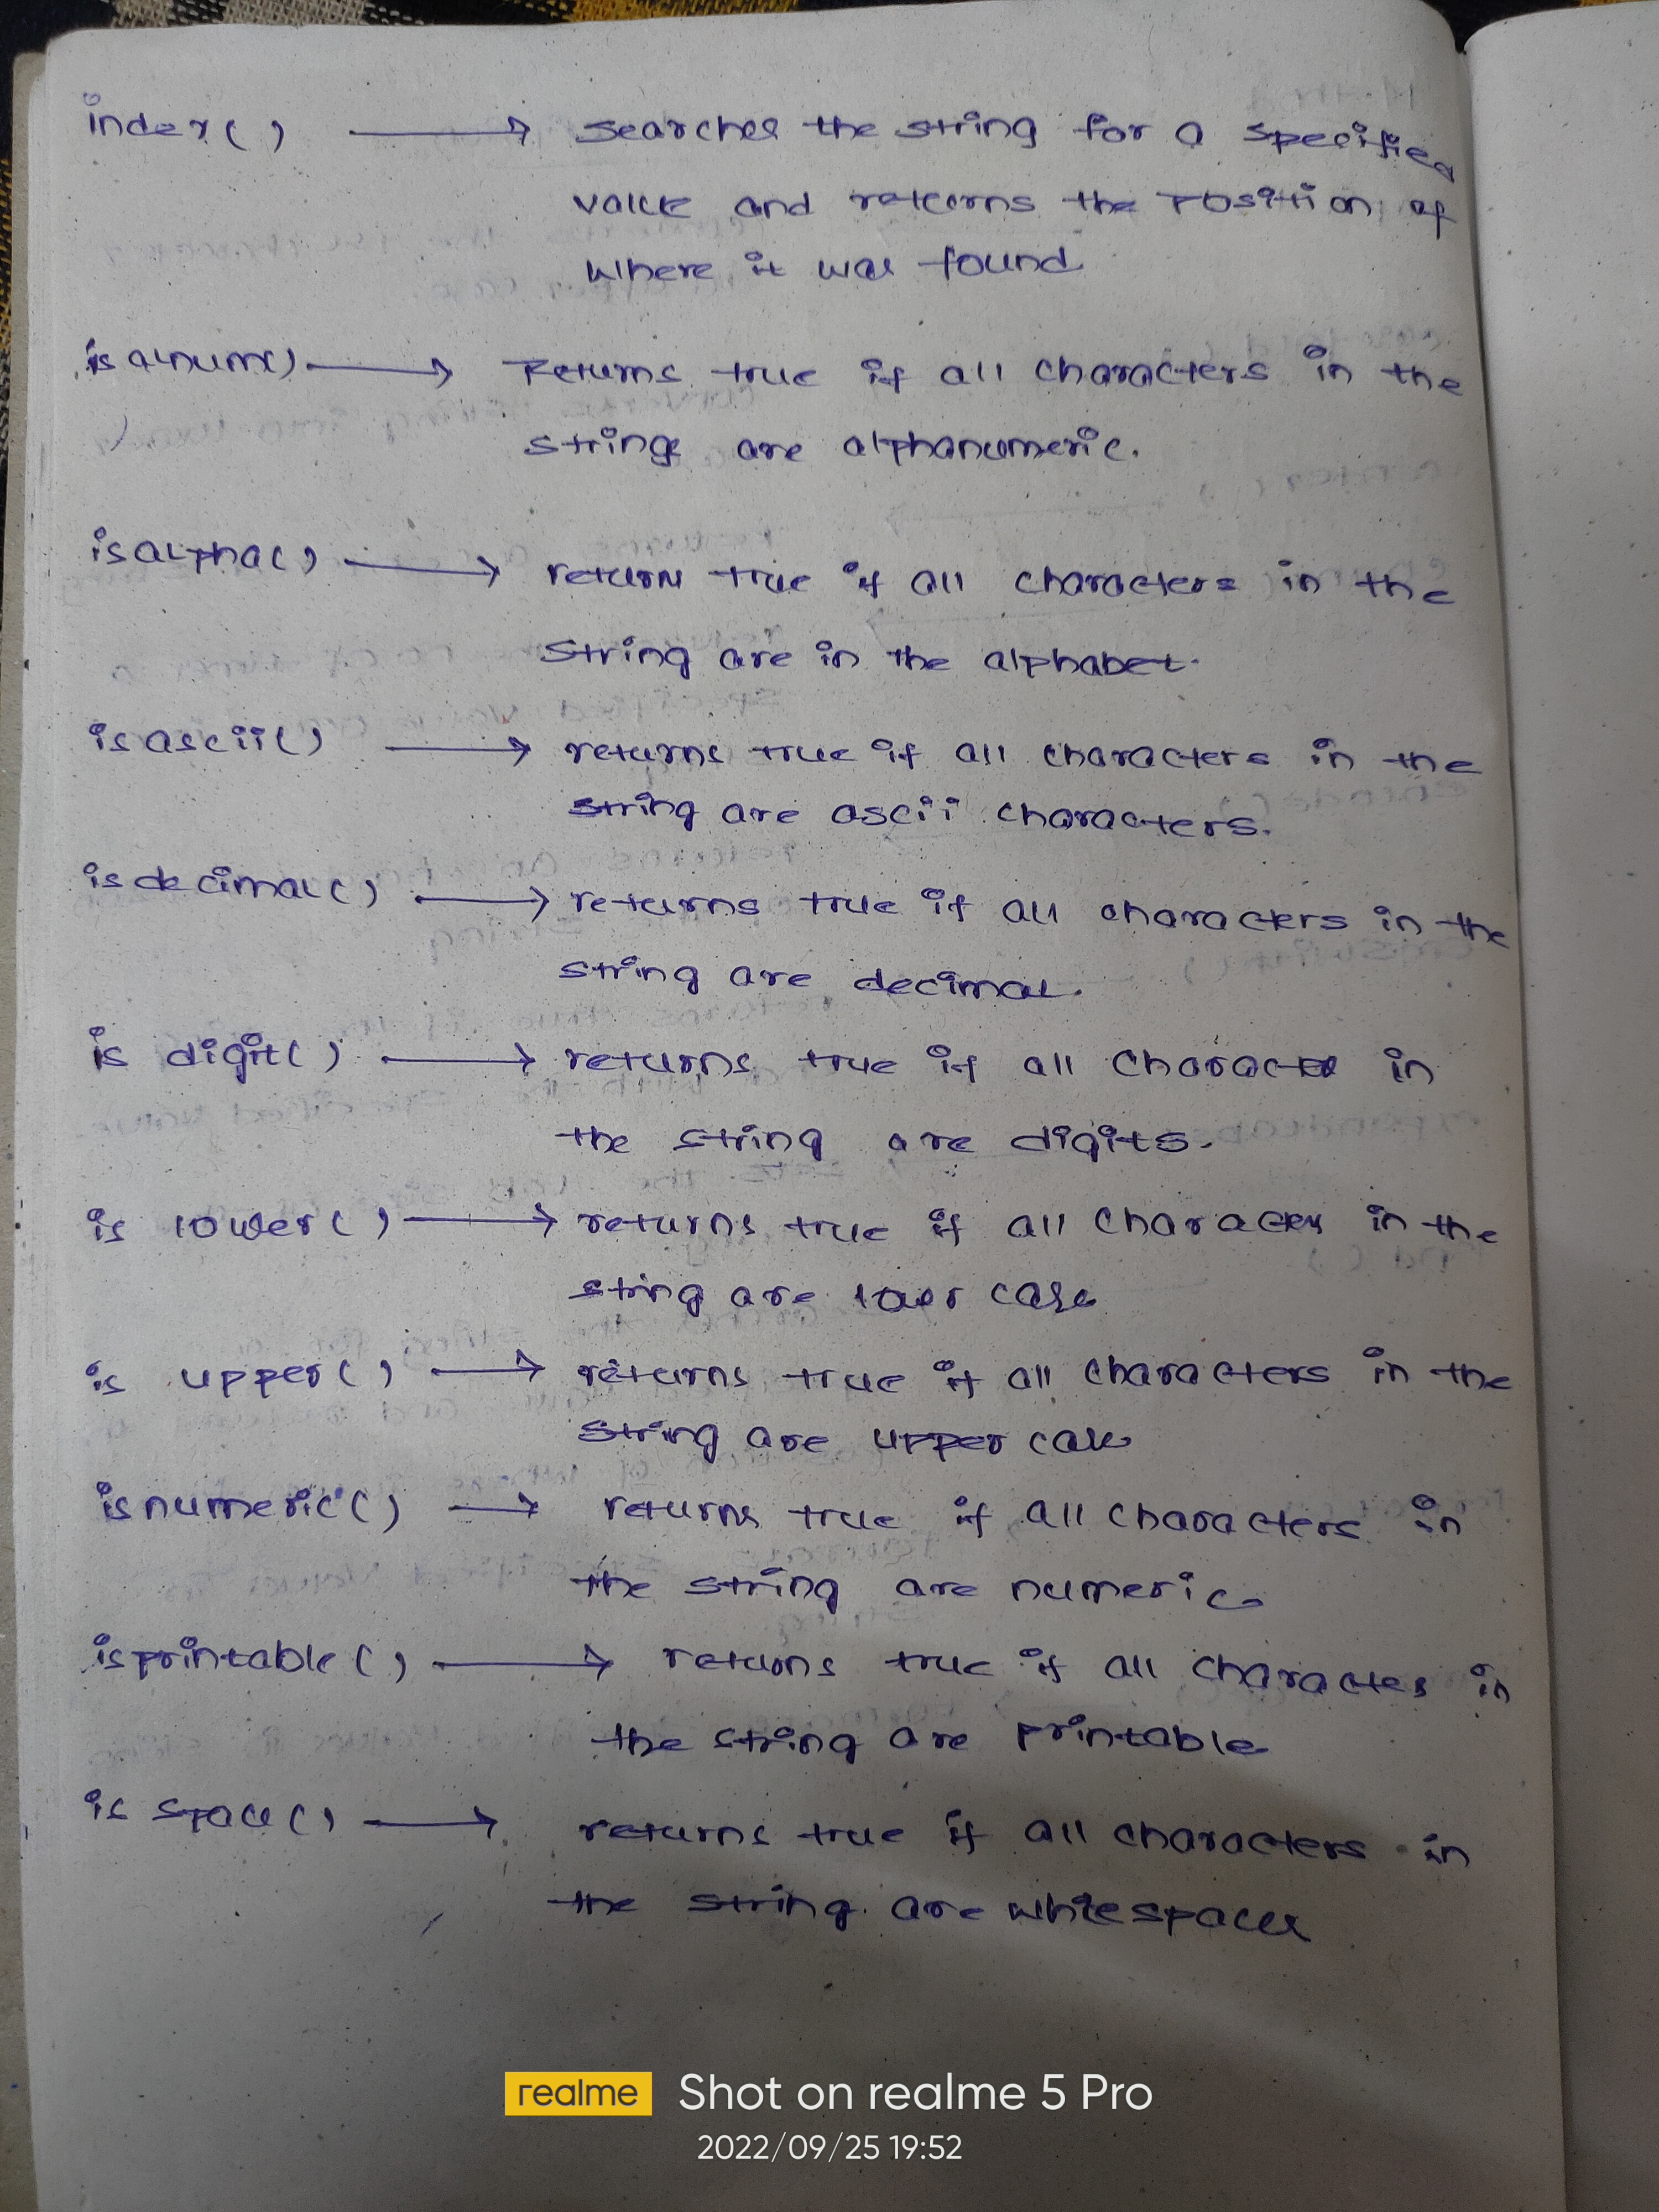 index() → searches the string for a specified
value and returns the Position of
where it was found
isalnum() → Returns true if all characters in the
string are alphanumeric.
isalpha() → return true if all characters in the
string are in the alphabet.
isascii() → returns true if all characters in the
string are ascii characters.
isdecimal() → returns true if all characters in the
string are decimal.
is digit() → returns true if all character in
the string are digits.
is lower() → returns true if all characters in the
string are lower case
is upper() → returns true if all characters in the
string are upper case
isnumeric() → returns true if all characters in
the string are numeric
isprintable() → returns true if all characters in
the string are printable
is space() → returns true if all characters in
the string are whitespaces
realme Shot on realme 5 Pro
2022/09/25 19:52